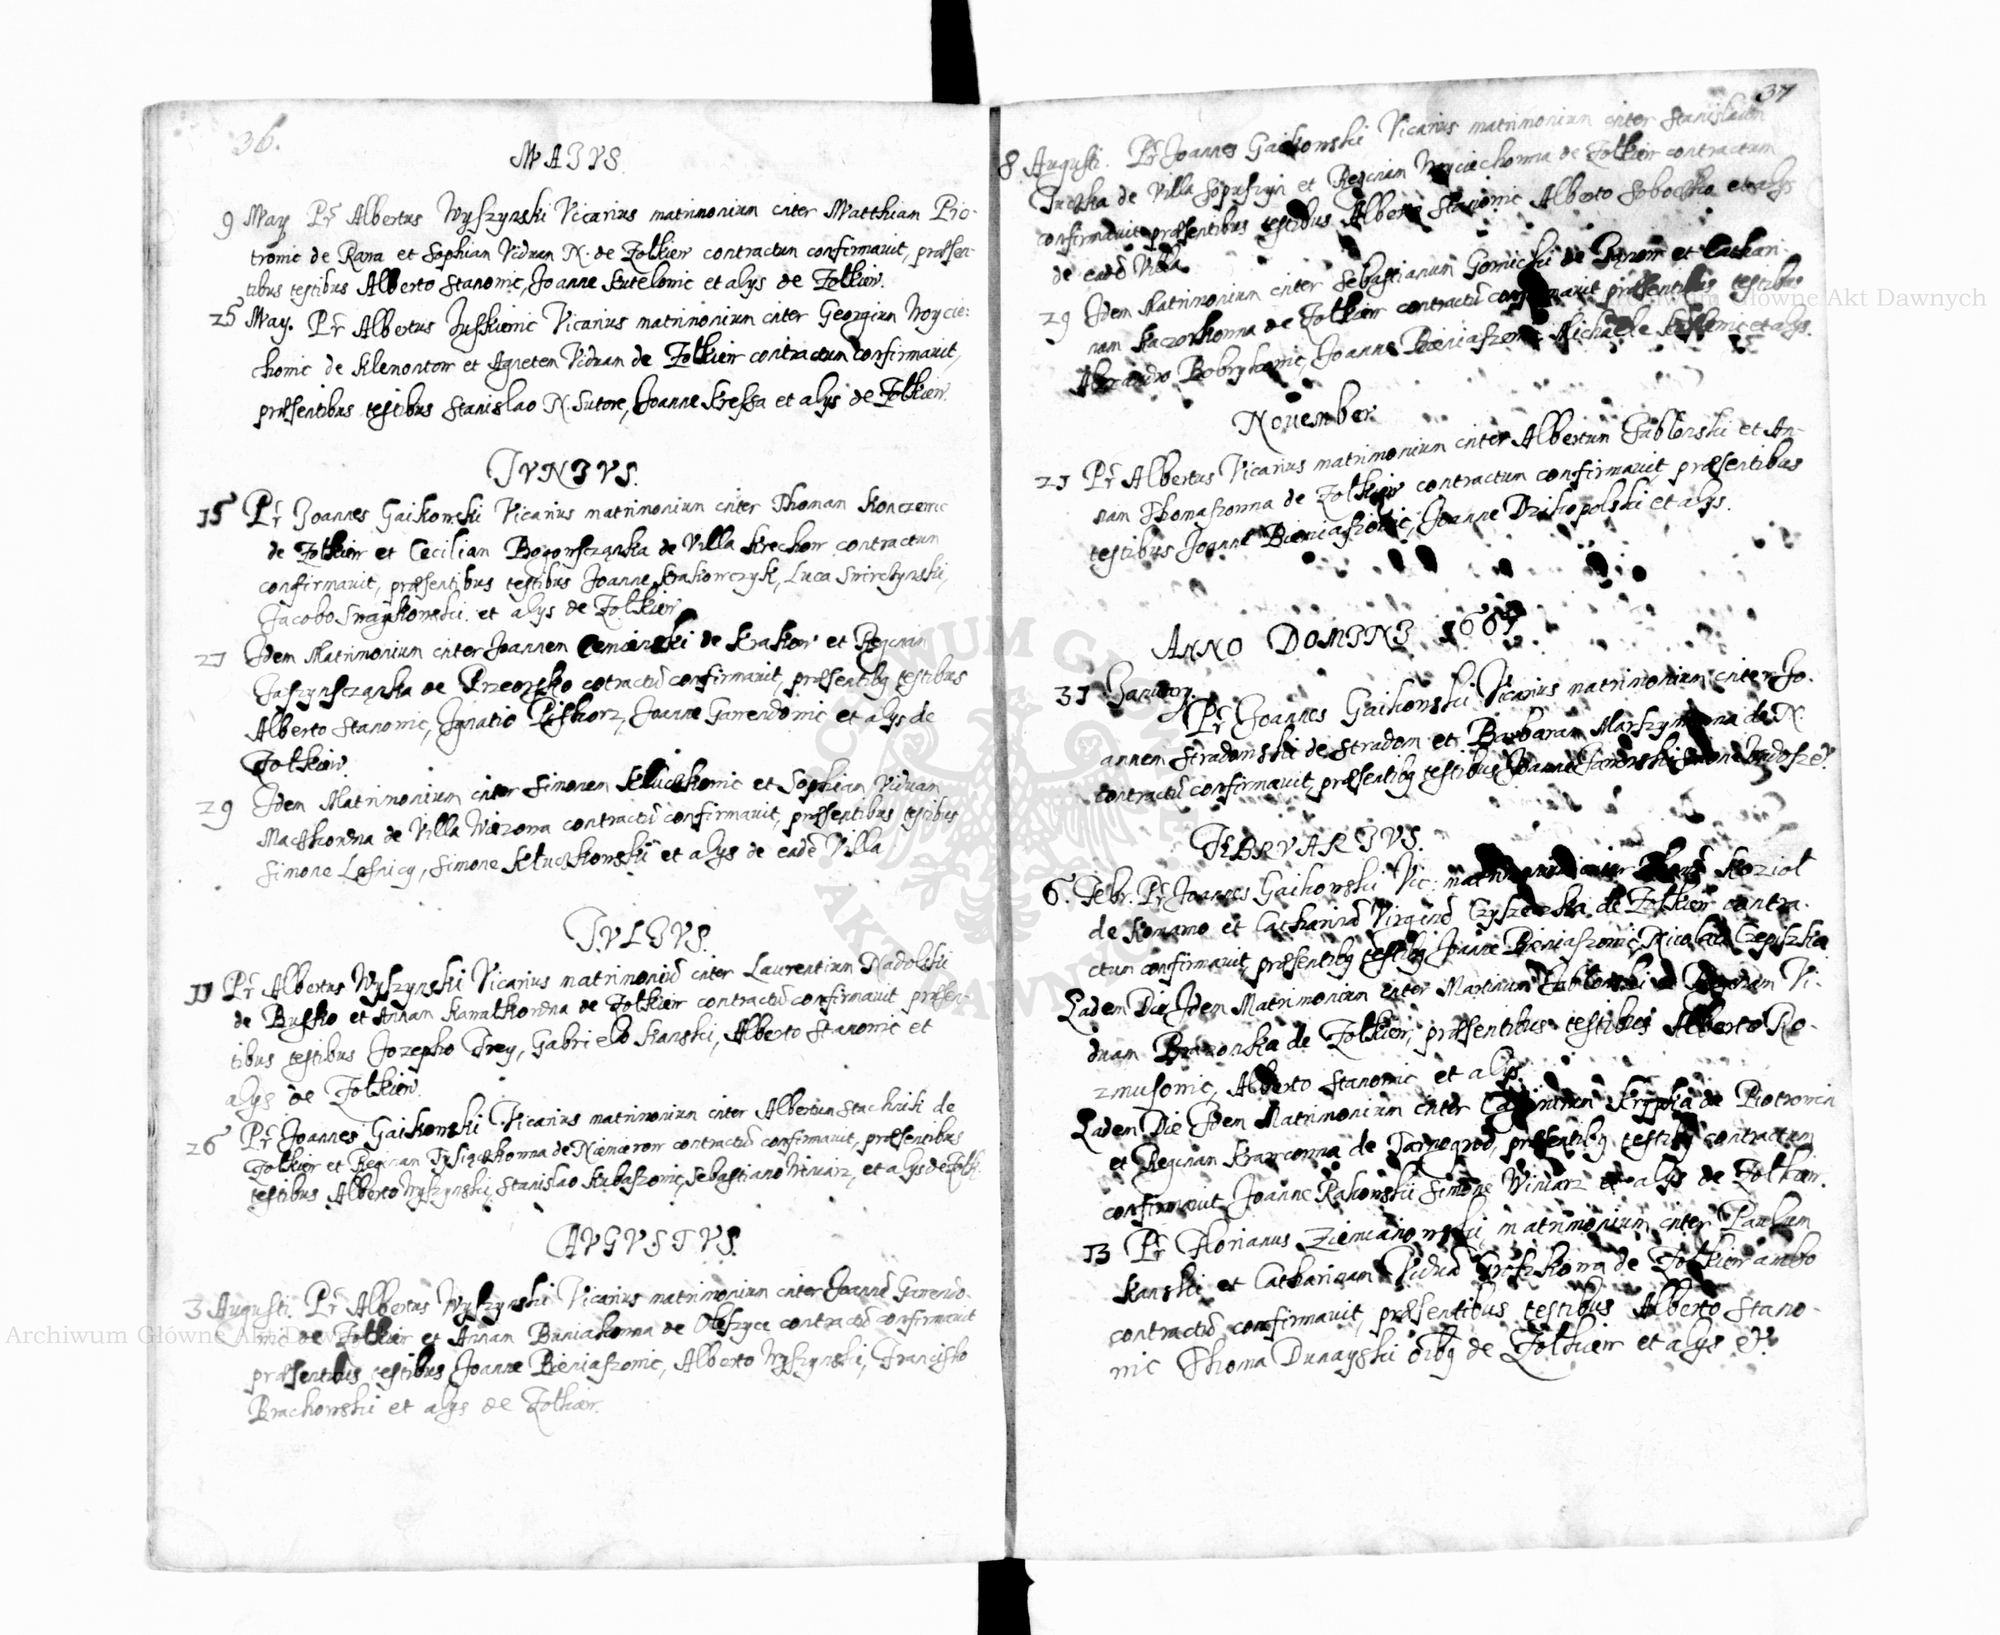 36.
MAIVS
9 May Pr Albertus Wyszynski Vicarius matrimonium inter Matthiam Pio-
trowic de Rawa et Sophian Viduam N. de Zolkiew contractum confirmavit, præsen-
tibus testibus Alberto Stanowic, Joanne Kutelowic et alys de Zolkiew.
25 May. Pr Albertus Juskiewic Vicarius matrimonium inter Georgium Woycie:
chowic de Klenontow et Agnetem Viduam de Zolkiew contractum confirmavit,
præsentibus testibus Stanislao N. Sutore, Joanne Kressa et alys de Zolkiew.
IVNIVS.
15 Pr Joannes Gaikowski Vicarius matrimonium inter Thomam Konczewic
de Zolkiew et Cecilian de Villa Krechow contractum
confirmavit, præsentibus testibus Joanne Krakowczyk, Luca
Jacobo et alys de Zolkiew
21 Idem Matrimonium inter Joannem de Krakow et Reginam
de Przeorsko cotractū confirmavit, præsentibq testibus
Alberto Stanowic, Ignatio Piskorz, Joanne Gawendowic et alys de
Zolkiew.
29 Idem Matrimonium inter Simonem Kluczkowic et Sophian Viduam
Mackowna de Villa Wiazowa contractū confirmavit, præsentibus testibus
Simone Lesnicy, Simone Kluczkowski et alys de eadē Villa
IVLIVS.
11 Pr Albertus Wyszynski Vicarius matrimoniū inter Laurentium Nadolski
de Busko et Annam de Zolkiew contractū confirmavit præsen-
tibus testibus Jozepho Frey, Gabrielo Kanski, Alberto Stanowic et
alys de Zolkiew.
26 Pr Joannes Gaikowski Vicarius matrimonium inter Albertum Stachnik de
Zolkiew et Reginam de Niemierow contractū confirmavit, præsentibus
testibus Alberto Wyszynski, Stanislao Kubaszowic, Sebastiano Winiarz, et alys de Zolk.
AVGVSTVS.
3 Augusti. Pr Albertus Wyszynski Vicarius matrimonium inter Joannē Gawendo-
wic de Zolkiew et Annam Buniakowna de contractū confirmavit
præsentibus testibus Joanne Bieniaszowic, Alberto Wyszynski, Francisko
Brachowski et alys de Zolkiew.
37
8 Augusti. Pr Joannes Gaikowski Vicarius matrimonium inter Stanislaum
de Villa Soposzyn et Reginam Woyciechowna de Zolkiew contractum
confirmavit præsentibus testibus Alberto Stanowic Alberto et alys
de eadē Villa
29 Idem Matrimonium inter Sebastianum Gornicki de et Cathari-
nam Kaczorkowna de Zolkiew contractū confirmavit præsentibus testibus
Alexandro Bobrykowic, Joanne Bieniaszowic Michaele et alys.
November
21 Pr Albertus Vicarius matrimonium inter Albertum Jablonski et An-
nam Thomaszowna de Zolkiew contractum confirmavit, præsentibus
testibus Joanne Bieniaszowic, Joanne Dzikopolski et alys.
ANNO DOMINI
31 January.
Pr Joannes Gaikowski Vicarius matrimonium inter Jo-
annem Stradomski de Stradom et Barbaram de N.
contractū confirmavit, præsentibq testibus Joanne
FEBRVARIVS.
6. Febr. Pr Joannes Gaikowski Vic: matrimonium inter Koziol
de Komarno et Catharinā Virginē de Zolkiew contra-
ctum confirmavit, præsentibq testibq Joanne Bieniaszowic, Nicolao
Eadem Die Idem Matrimonium inter Martinum Jablonski et Reginam Vi-
duam de Zolkiew, præsentibus testibus Alberto Ro-
zmusowic, Alberto Stanowic et alys
Eadem Die Idem Matrimonium inter de Piotrowin
et Reginam Krawcowna de Tarnogrod, præsentibq testibq contractum
confirmavit Joanne Rakowski Simone Winiarz et alys de Zolkiew.
13 Pr Florianus Ziemianowski, matrimonium inter Paulum
Kanski et Catharinam Viduā de Zolkiew ambo
contractū confirmavit, præsentibus testibus Alberto Stano-
wic Thoma Dunayski oibq de Zolkiew et alys
Archiwum Główne Akt Dawnych
Archiwum Główne Akt Dawnych
ARCHIWUM GŁÓWNE
AKT DAWNYCH